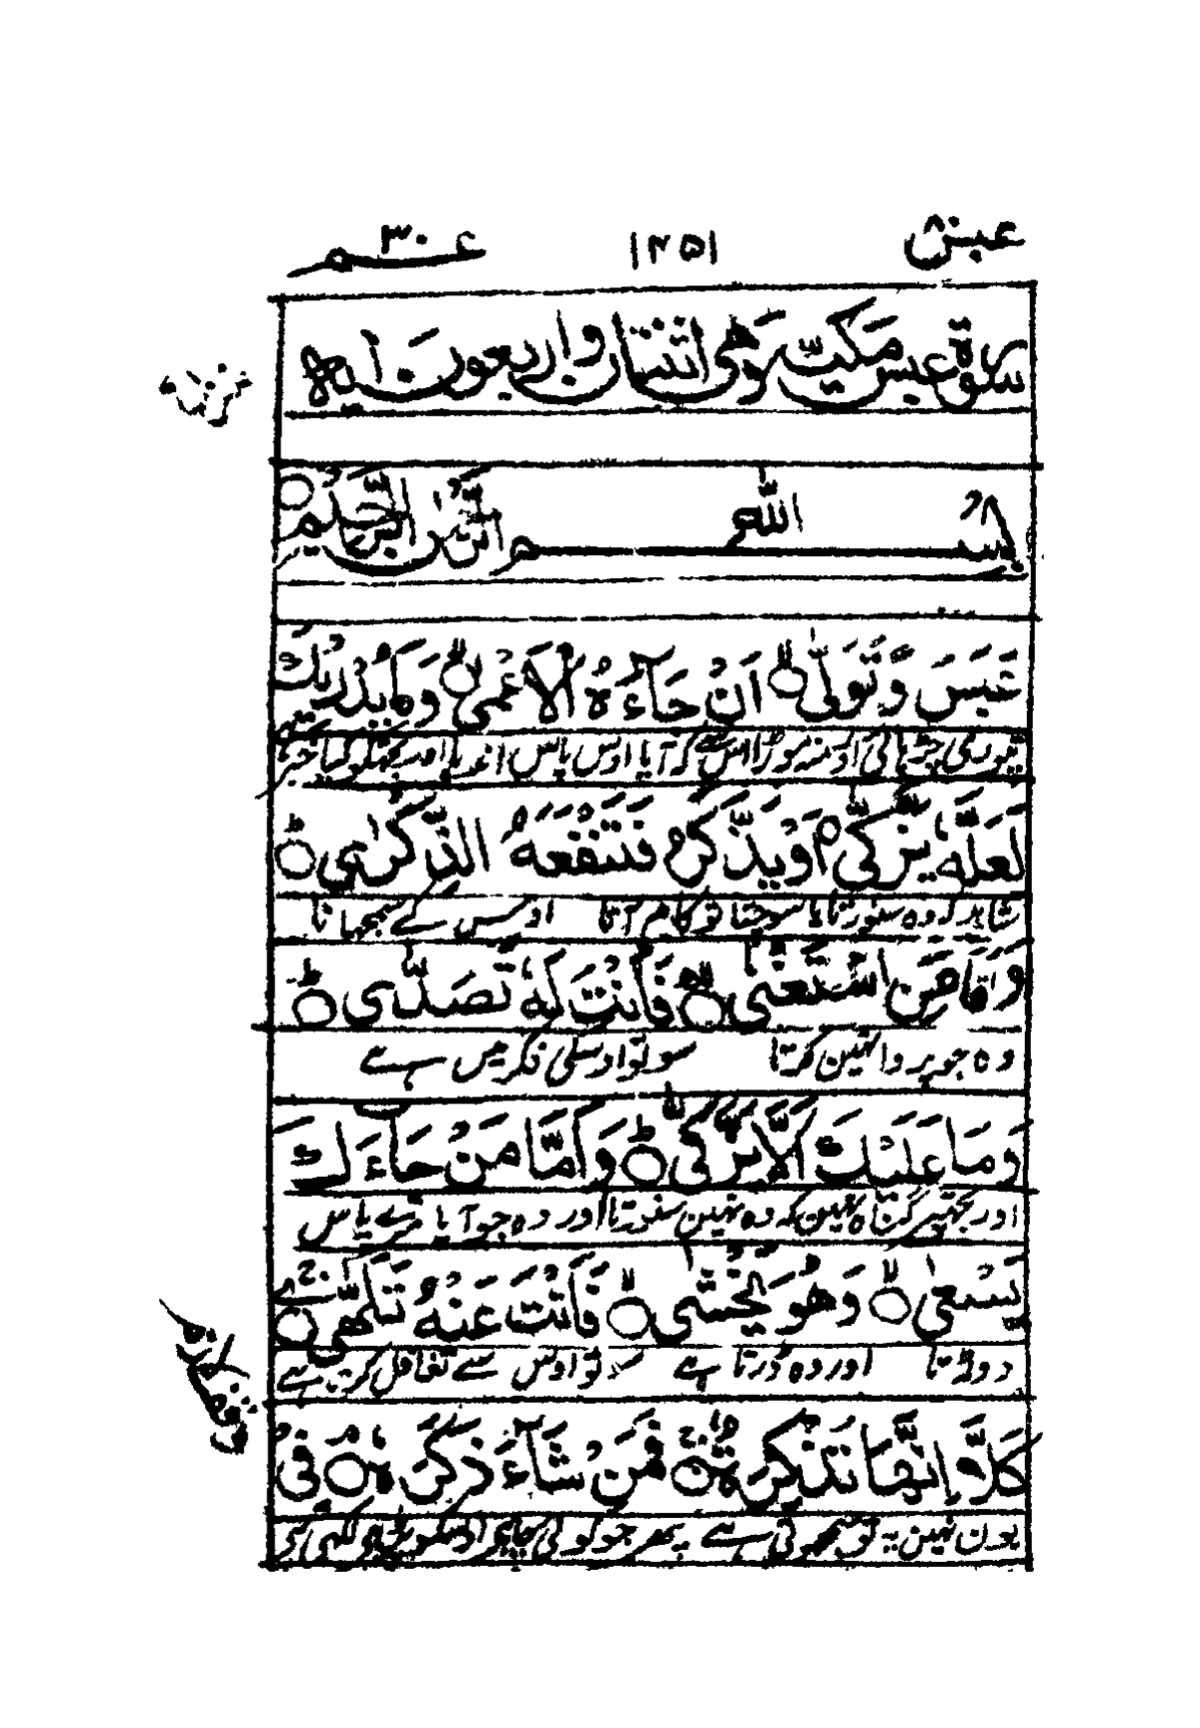 عبس ۱۲۵۱ عمّ ۳۰
سورة عبس مكية وهي اثنتان واربعون اية
بسم الله الرحمن الرحيم
عَبَسَ وَتَوَلّٰى اَنْ جَآءَهُ الْاَعْمٰى وَمَا يُدْرِيْكَ
تیوری چڑھائی اور منہ موڑا اس سے کہ آیا اوس پاس اندھا اور تجھکو کیا خبر ہے
لَعَلَّهٗ يَزَّكّٰى اَوْ يَذَّكَّرُ فَتَنْفَعَهُ الذِّكْرٰى ط
شاید کہ وہ سنورتا یا سوچتا تو کام آتا اوسکے سمجھانا
وَاَمَّا مَنِ اسْتَغْنٰى لا فَاَنْتَ لَهٗ تَصَدّٰى ط
وہ جو پروا نہین کرتا سو تو اوسکی فکر میں ہے
وَمَا عَلَيْكَ اَلَّا يَزَّكّٰى ط وَاَمَّا مَنْ جَآءَكَ
اور تجھپر گناہ نہین کہ وہ نہین سنورتا اور وہ جو آیا تیرے پاس
يَسْعٰى لا وَهُوَ يَخْشٰى لا فَاَنْتَ عَنْهُ تَلَهّٰى ج
دوڑتا اور وہ ڈرتا ہے سو تو اوس سے تغافل کرتا ہے
كَلَّا اِنَّهَا تَذْكِرَةٌ ج فَمَنْ شَآءَ ذَكَرَهٗ م فِىْ
یون نہین یہ تو سمجھوتی ہے پھر جو کوئی چاہے اوسکو پڑھے لکھی ہے